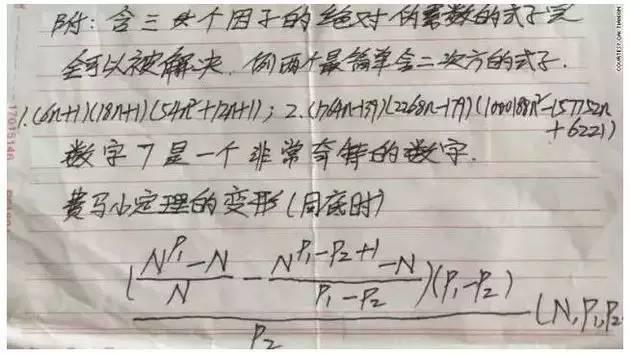 附: 含三个因子的绝对伪素数的式子完
全可以被解决. 例两个最简单含二次方的式子.
1.(6n+1)(18n+1)(54n²+12n+1); 2.(1764n-139)(2268n-179)(1000188n²-157752n
+6221)
数字7是一个非常奇特的数字.
费马小定理的变形(同底时)
((N^P₁-N)/N - (N^(P₁-P₂+1)-N)/(P₁-P₂))(P₁-P₂)
P₂
(N,P₁,P₂
COURTESY CAI TIANXIN